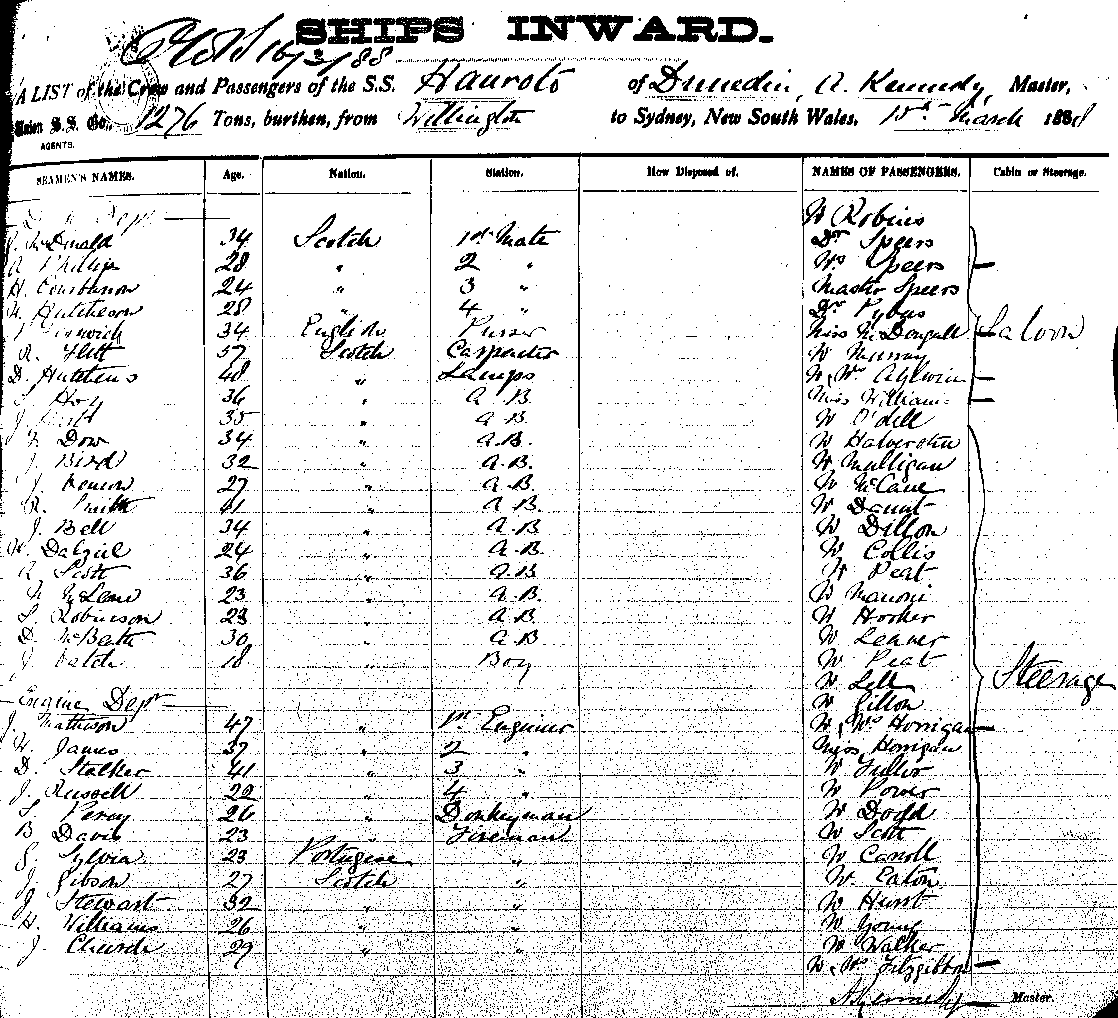 SHIPS INWARD.
16/3/88
A LIST of the Crew and Passengers of the S.S. Hauroto of Dunedin, A. Kennedy, Master,
Union S.S. Co., 1276 Tons, burthen, from Wellington to Sydney, New South Wales, 15th March 1888
AGENTS.
SEAMEN'S NAMES. Age. Nation. Station. How Disposed of. NAMES OF PASSENGERS. Cabin or Steerage.
Mr Robins
McDonald 34 Scotch 1st Mate Dr Speers
A Phillip 28 " 2 " Mrs Speers
H. 24 " 3 " Master Speers
Hutcheson 28 " 4 " Dr Pybus
34 English Purser Miss McDougall Saloon
R. Flett 57 Scotch Carpenter Mr Murray
D. Hutchens 48 " Lamps Mr & Mrs Aylwin
J Hoy 36 " A.B. Miss William
J. 35 " A.B. Mr O'dell
Dow 34 " A.B. Mr Halversten
J. Bird 32 " A.B. Mr Mulligan
J. 27 " A.B. Mr McCane
R. Smith 41 " A.B. Mr Daunt
J. Bell 34 " A.B. Mr Dillon
W. Dalziel 24 " A.B. Mr Collis
R Scott 36 " A.B. Mr Peat
23 " A.B. Mr
S. Robinson 23 " A.B. Mr Hooker
D. McBeath 30 " A.B. Mr Leaner
J. 18 " Boy Mr Peat
Mr Lell Steerage
Engine Dept Mr
J. Matheson 47 " 1st Engineer Mr & Mrs Horrigan
James 37 " 2 " Miss Horrigan
D. Stalker 41 " 3 " Mr Fuller
J. Russell 22 " 4 " Mr Power
S. Percy 26 " Donkeyman Mr Dodd
B Davis 23 " Fireman Mr Scott
S. Sylvia 23 Portugese " Mr Carroll
J. Gibson 27 Scotch " Mr Eaton
J. Stewart 32 " " Mr Hurst
H. Williams 26 " " Mr Young
J. Church 29 " " Mr Walker
Mr & Mrs Fitzgibbon
A Kennedy Master.